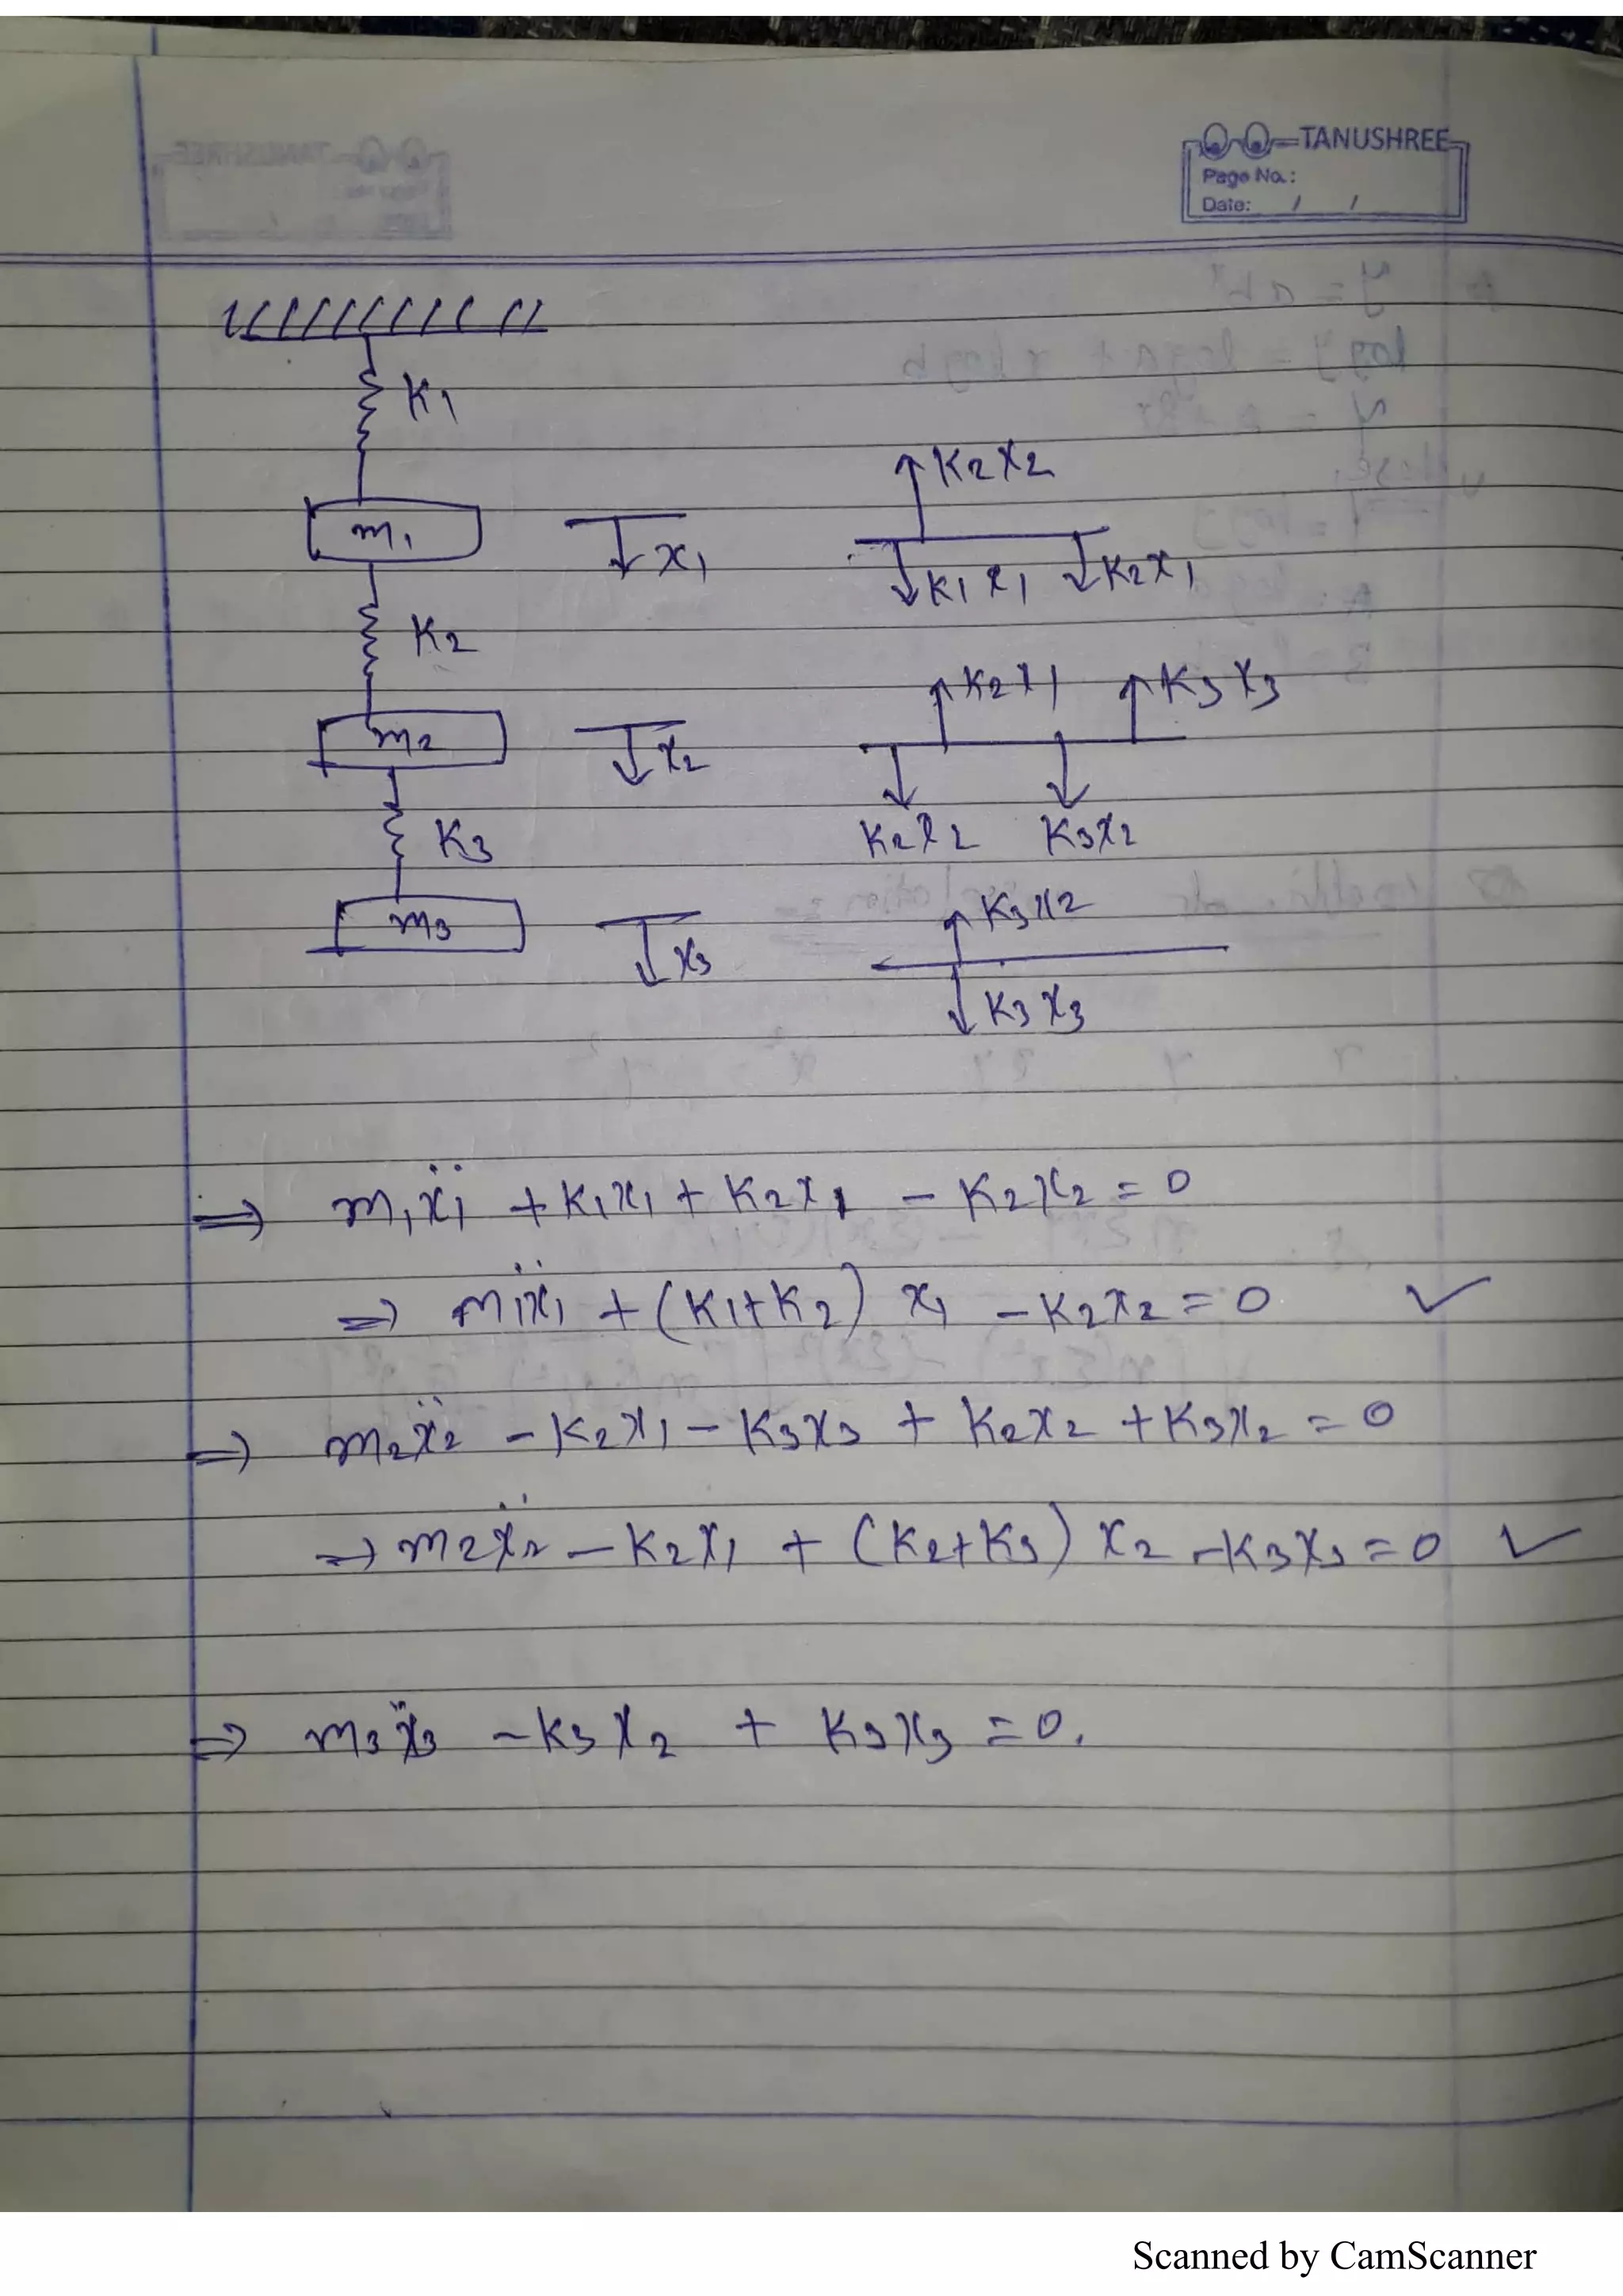 TANUSHREE
Page No.:
Date: / /
K1
m1
x1
K2x2
K1x1 K2x1
K2
m2
x2
K2x1 K3x3
K2x2 K3x2
K3
m3
x3
K3x2
K3x3
⇒ m1ẍ1 + K1x1 + K2x1 - K2x2 = 0
⇒ m1ẍ1 + (K1+K2) x1 - K2x2 = 0 ✓
⇒ m2ẍ2 - K2x1 - K3x3 + K2x2 + K3x2 = 0
⇒ m2ẍ2 - K2x1 + (K2+K3) x2 - K3x3 = 0 ✓
⇒ m3ẍ3 - K3x2 + K3x3 = 0.
Scanned by CamScanner